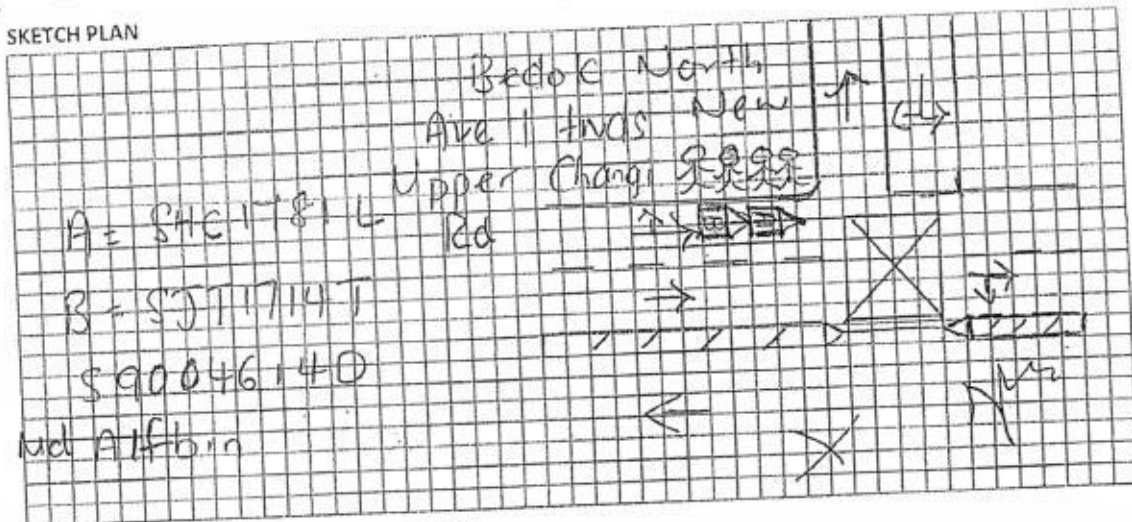 SKETCH PLAN
Bedok North
Ave 1 twds New
Upper Changi
Rd
A = SHC1781L
B = SJT1714T
S9004614D
Md Alfbin
B A